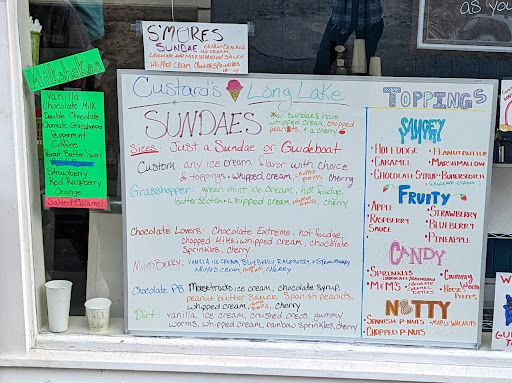 as you
S'MORES
SUNDAE
GRAHAM CRACKER
ICE CREAM,
CHOCOLATE BAR MARSHMALLOW SAUCE
WHIPPED CREAM, CHOPPED PEANUTS
Milkshakes
Vanilla
Chocolate Milk
Double Chocolate
Chocolate Grasshopper
Peppermint
Coffee
Peanut Butter
Strawberry
Red Raspberry
Orange
Salted Caramel
Custard's Long Lake
SUNDAES
*all sundaes have
whipped cream, chopped
peanuts, & a cherry
Sizes: Just a Sundae or Guideboat
Custom: any ice cream flavor with choice
of toppings • whipped cream, chopped peanuts, cherry
Grasshopper: green mint ice cream, hot fudge,
butterscotch • whipped cream, cherry
Chocolate Lovers: Chocolate Extreme, hot fudge,
chopped Kits, whipped cream, chocolate
sprinkles, cherry
MindBerry: VANILLA ICE CREAM, BLUEBERRY, RASPBERRY & STRAWBERRY
WHIPPED CREAM CHERRY
Chocolate PB: Moosetracks ice cream, chocolate syrup,
peanut butter sauce, Spanish peanuts,
whipped cream, cherry
Dirt: vanilla ice cream, crushed oreos, gummy
worms, whipped cream, rainbow sprinkles, cherry
TOPPINGS
SAUCEY
• HOT FUDGE • PEANUT BUTTER
• CARAMEL • MARSHMALLOW
• CHOCOLATE SYRUP • BUTTERSCOTCH
• WHIPPED CREAM
FRUITY
• APPLE • STRAWBERRY
• RASPBERRY • BLUEBERRY
SAUCE • PINEAPPLE
CANDY
• SPRINKLES
CHOCOLATE RAINBOW
• M&M'S
• Gummy worms
• Reese's Pieces
NUTTY
• SPANISH P-NUTS • MAPLE WALNUTS
• CHOPPED P-NUTS